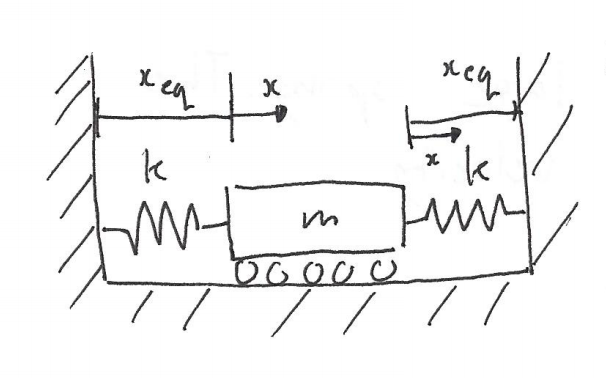 x eq x x eq
x
k k
m